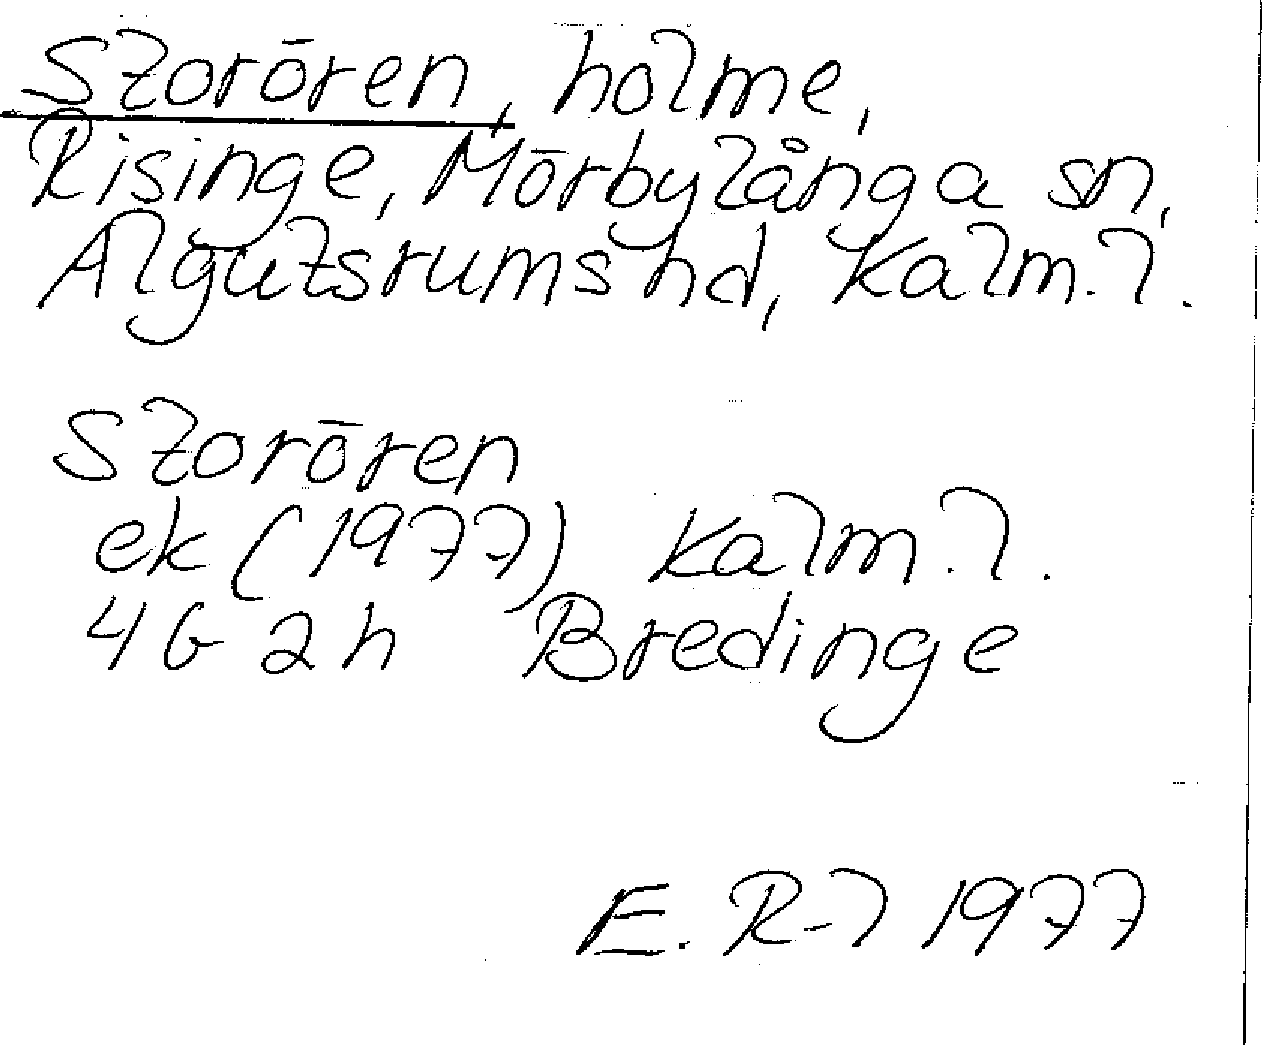 Storören, holme,
Risinge, Mörbylånga sn,
Algutsrums hd, Kalm. l.
Storören
ek (1977) Kalm. l.
4G 2h Bredinge
E. R-l 1977